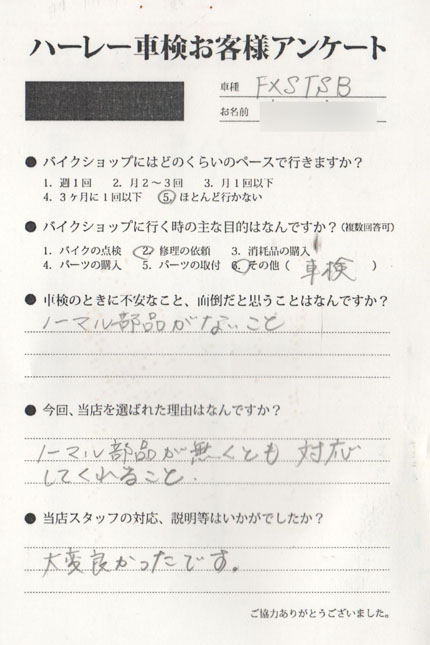 ハーレー車検お客様アンケート
車種 FXSTSB
お名前
● バイクショップにはどのくらいのペースで行きますか？
1. 週1回 2. 月2～3回 3. 月1回以下
4. 3ヶ月に1回以下 5. ほとんど行かない
● バイクショップに行く時の主な目的はなんですか？(複数回答可)
1. バイクの点検 2. 修理の依頼 3. 消耗品の購入
4. パーツの購入 5. パーツの取付 6. その他（ 車検 ）
● 車検のときに不安なこと、面倒だと思うことはなんですか？
ノーマル部品がないこと
● 今回、当店を選ばれた理由はなんですか？
ノーマル部品が無くとも 対応
してくれること.
● 当店スタッフの対応、説明等はいかがでしたか？
大変良かったです。
ご協力ありがとうございました。